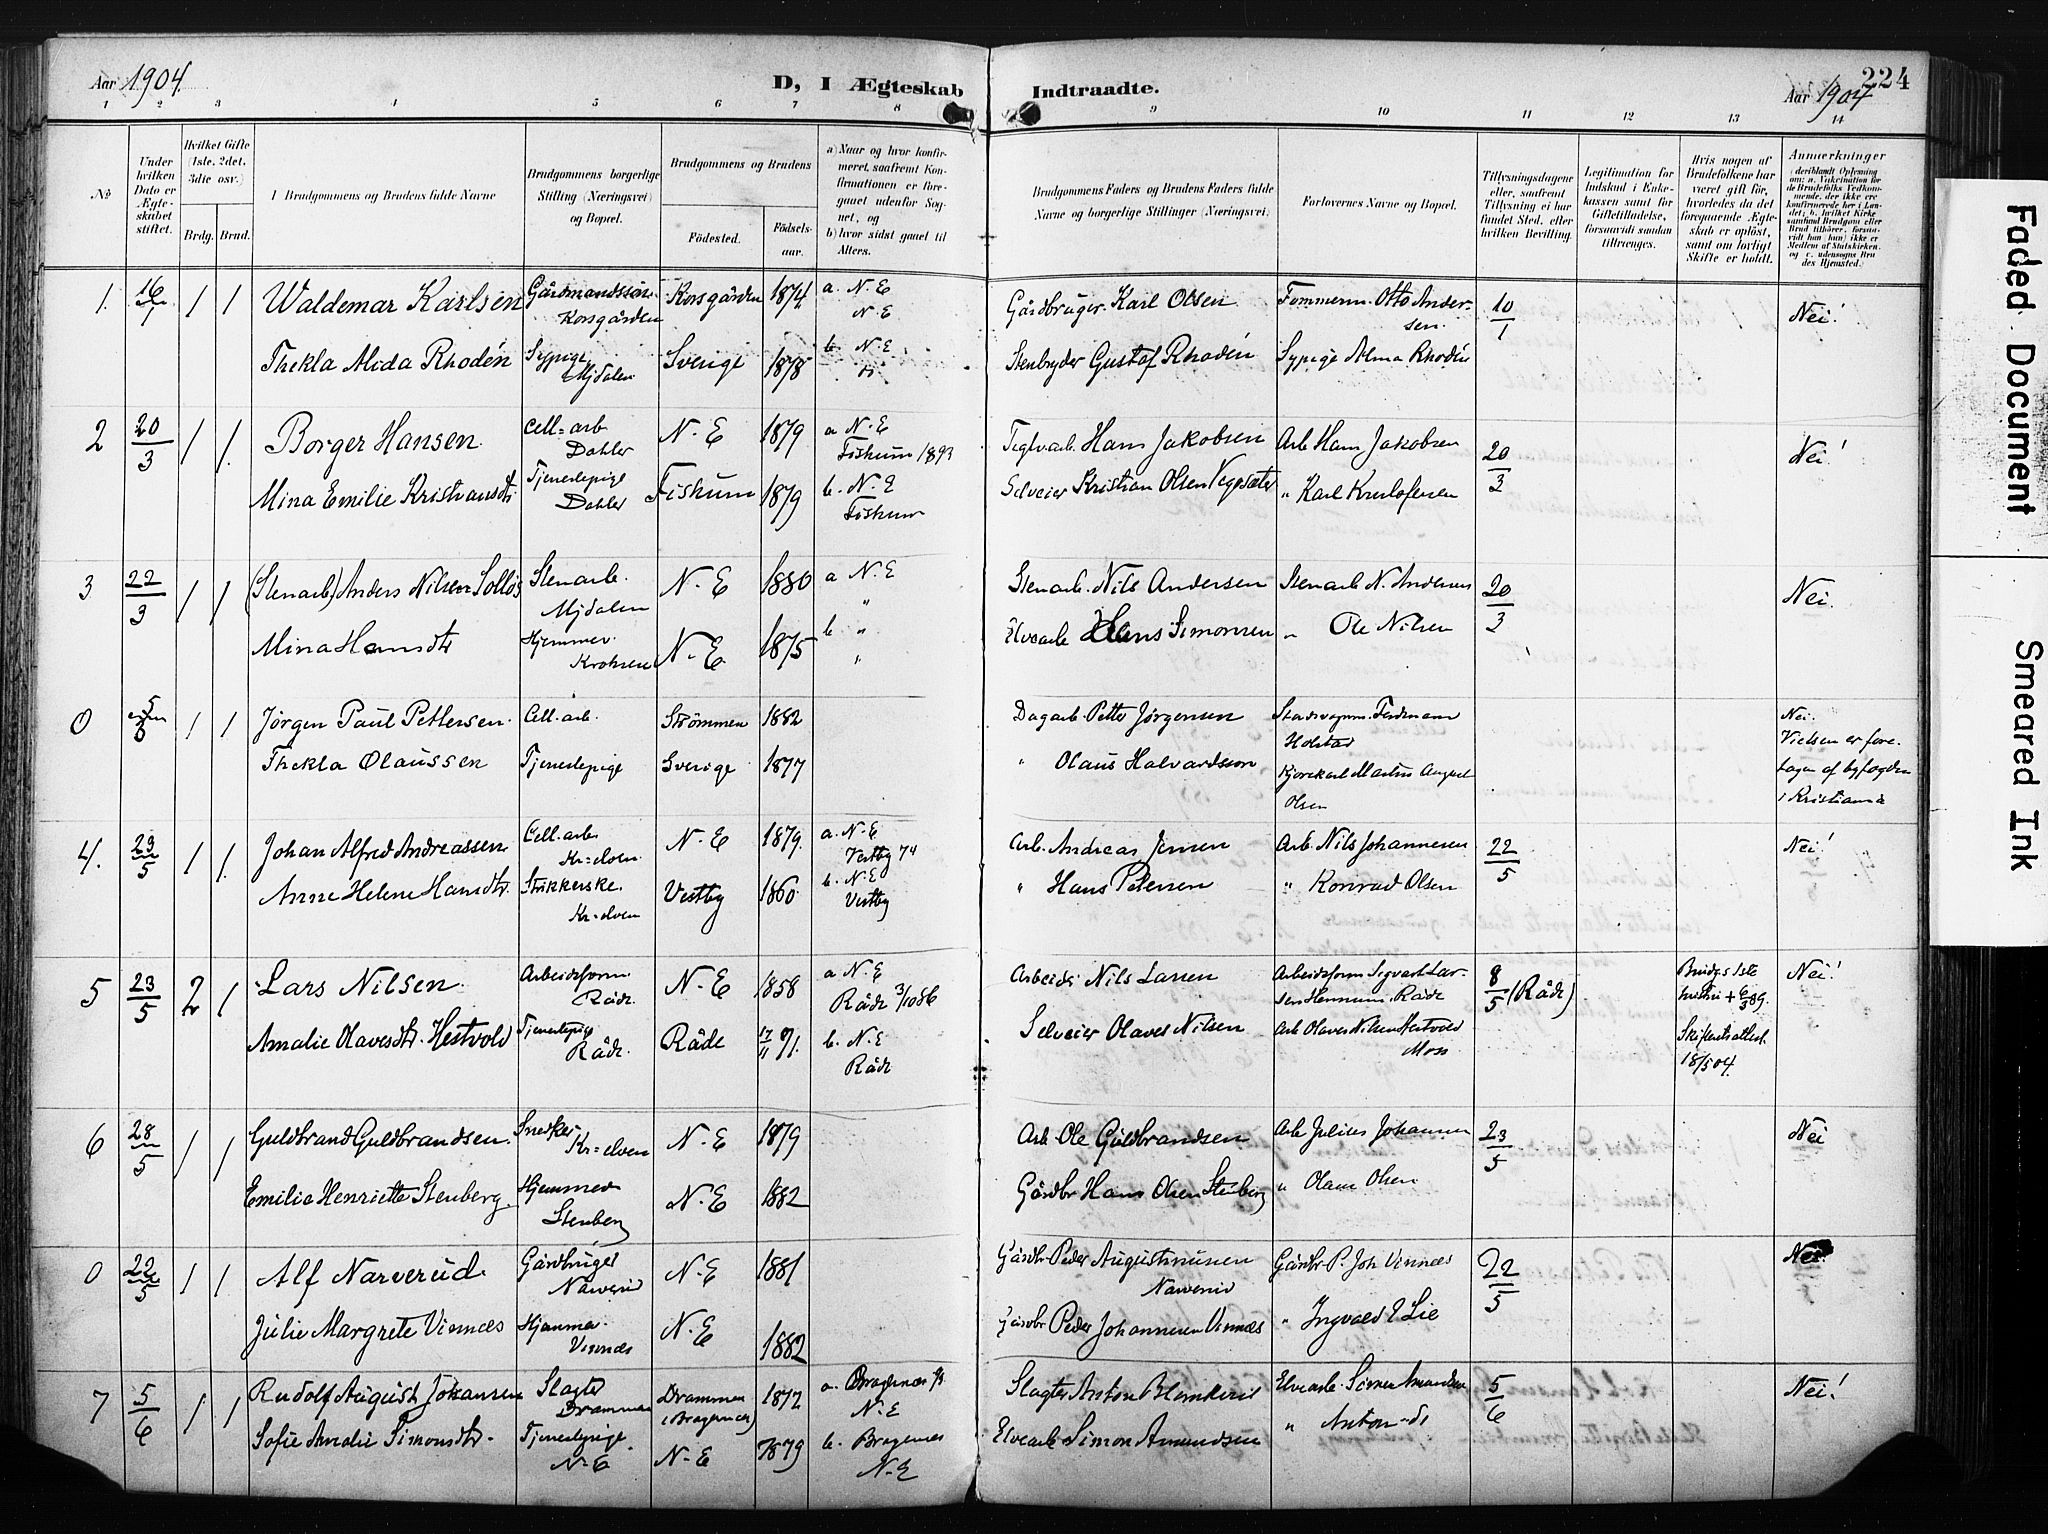 Aar 1904. D, I Ægteskab Indtraadte. Aar 1904 224
1 2 3 4 5 6 7 8 9 10 11 12 13 14
No
Under hvilken Dato er Ægteskabet stiftet.
Hvilket Gifte (1ste, 2det, 3die osv.)
Brdg. Brud.
I Brudgommens og Brudens fulde Navne
Brudgommens borgerlige Stilling (Næringsvei) og Bopæl.
Brudgommens og Brudens
Födested. Födselsaar.
a) Naar og hvor konfirmeret, saafremt Konfirmationen er foregaaet udenfor Sognet, og
b) hvor sidst gaaet til Alters.
Brudgommens Faders og Brudens Faders fulde Navne og borgerlige Stillinger (Næringsvei)
Forlovernes Navne og Bopæl.
Tillysningsdagene eller, saafremt Tillysning ei har fundet Sted, efter hvilken Bevilling.
Legitimation for Indskud i Enkekassen samt for Giftetilladelse, forsaavidt saadan tiltrænges.
Hvis nogen af Brudefolkene har været gift för, hvorledes da det foregaaende Ægteskab er oplöst, samt om lovligt Skifte er holdt.
Anmærkninger
1. 16/1 1 1 Waldemar Karlsen Gårdmandssön Korsgården Korsgården 1874 a. N-E N-E Gårdbruger Karl Olsen Tømmerm. Otto Andersen 10/1 Nei!
Thekla Alida Rhodén Sypige Mjdalen Sverige 1878 b. N-E Stenbryder Gustaf Rhodén Sypige Alma Rhodén
2 20/3 1 1. Borger Hansen Cell-arb Dahler N-E 1879 a N-E Fiskum 1893 Teglv.arb. Hans Jakobsen Arb Hans Jakobsen 20/3 Nei!
Mina Emilie Kristiansdtr Tjenestepige Dahler Fiskum 1879 b. N-E Fiskum Selveier Kristian Olsen " Karl Kristofersen
3 22/3 1 1 (Stenarb) Anders Nilsen Solløs Stenarb. Mjdalen N-E 1880 a N-E " Stenarb. Nils Andersen Stenarb N. Andersen 20/3 Nei.
Mina Hansdtr Hjemmev. Krohsen N-E 1875 b " " Elvearb Hans Simonsen " Ole Nilsen
0 1 1 Jørgen Paul Pettersen. Cell-arb. Strömmen 1882 Dagarb. Petter Jørgensen Ferdinand Holstad Nei.
Thekla Olaussen Tjenestepige Sverige 1877 " Olaus Halvardsson Kjørekarl Martin August Olsen Vielsen er foretagen af byfogden i Kristiania
4. 23/5 1 1. Johan Alfred Andreassen Cell-arb. Kr=elven N-E 1879. a. N-E Vestby 74 Arb. Andreas Jensen Arb. Nils Johannesen 22/5 Nei!
Anne Helene Hansdtr. Strikkerske. Kr=elven Vestby 1860 b. N-E Vestby " Hans Petersen " Konrad Olsen
5 23/5 2 1 Lars Nilsen. Arbeidsform Råde N-E 1858 a N-E Råde 3/10 86 Arbeider Nils Larsen Arbeidsform Sigvart Larsen Hennum, Råde 8/5 (Råde) Brudgs 1ste hustru + 6/3 89. Nei!
Amalie Olavesdtr. Hestvold Tjenestepige Råde. Råde 17/11 71. b. N-E Råde Selveier Olaves Nilsen Arb Olaves Nilsen Hestvold Moss Skifteattest. 18/5 04.
6 28/5 1 1 Guldbrand Guldbrandsen. Snedker Kr=elven N-E 1879 Arb Ole Guldbrandsen Arb Julius Johansen 23/5 Nei
Emilie Henriette Stenberg. Hjemmev Stenberg N-E 1882 Gårdbr Hans Olsen Stenberg " Olaus Olsen
0 22/5 1 1 Alf Narverud. Gårdbruger Narverud N-E 1881 Gårdbr Peder Augustinusen Narverud Gårdbr P. Joh Vinnæs 22/5 Nei.
Julie Margrete Vinnæs Hjemme. Vinnæs N-E 1882 Gårdbr Peder Johannesen Vinnæs " Ingvald E Lie
7 5/6 1 1 Rudolf August Johansen Slagter Drammen Drammen (Bragernes) 1872 a. Bragernes N-E Slagter Anton Blomkvist Elvearb. Simon Amundsen 5/6 Nei!
Sofie Amalie Simonsdtr. Tjenestepige. N-E N-E 1879 b. Bragernes N-E Elvearb Simon Amundsen " Anton do
Faded Document
Smeared Ink